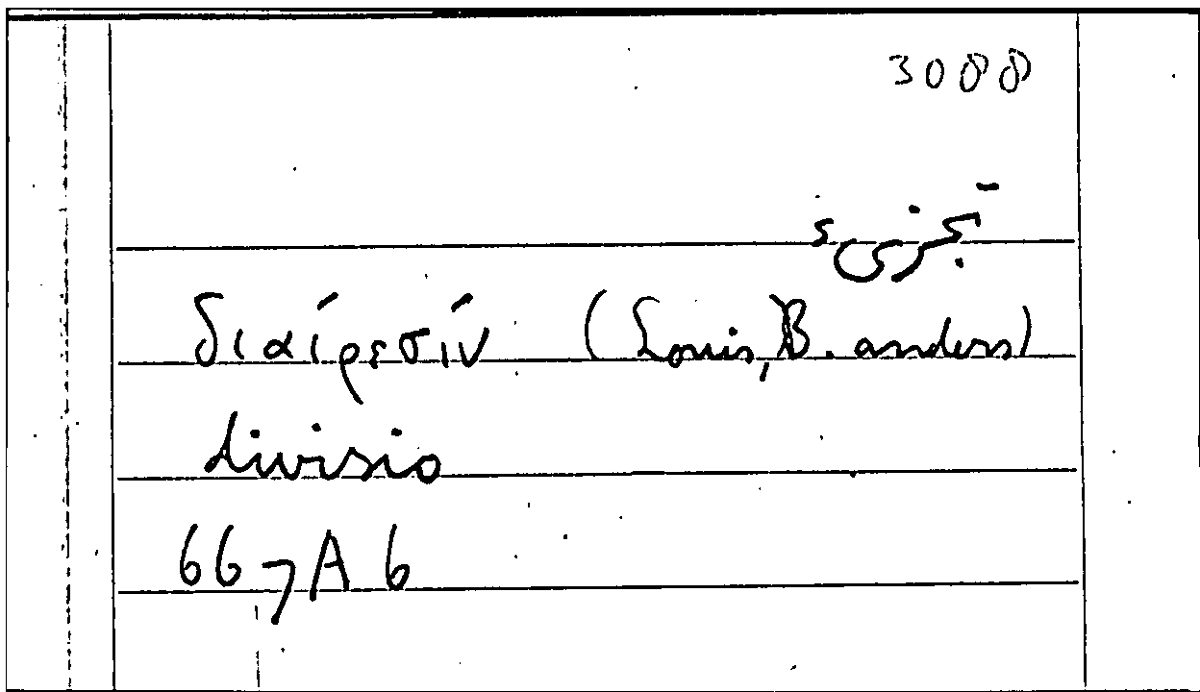 3088
تجزىء
διαίρεσίν (Louis, B. anders)
divisio
667A6